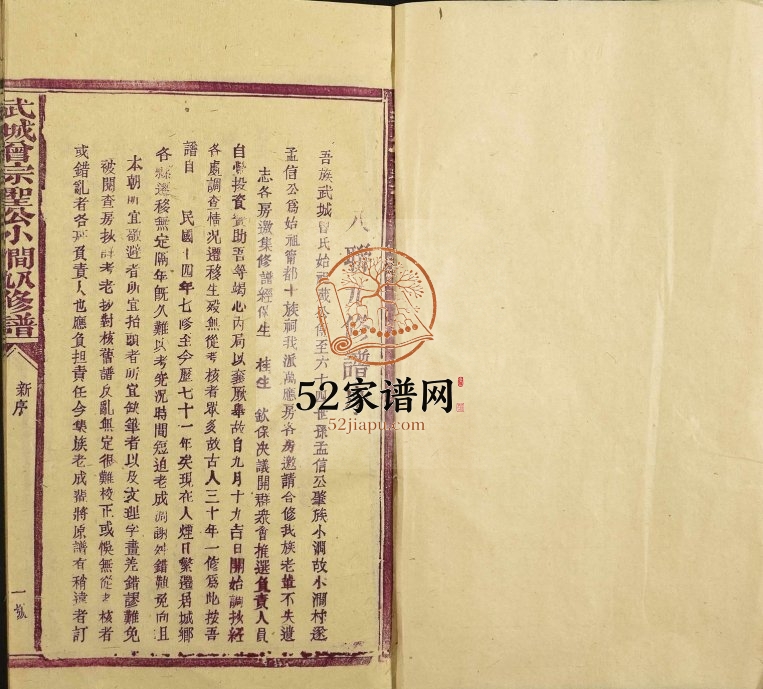 八 修譜
吾族武城曾氏始 至六十四世孫孟信公肇族小澗故小澗村遂
孟信公爲始祖甯都十族祠我派萬應房各房邀請合修我族老輩不失遺
志各房邀集修譜經 生 桂生 欽保决議開群衆會推選負責人員
自 投資贊助吾等竭心内局以 厥舉故自九月十九吉日開始調抄經
各處調查情况遷移生殁無從考核者眾多故古人三十年一修爲此按吾
譜自 民國十四年七修至今歷七十一年矣現在人煙日繁遷居城鄉
各縣遷移無定隔年旣久難以考究况時間短迫老成凋謝舛錯難免向且
本朝所宜敬避者所宜抬頭者所宜缺筆者以及文理字畫差錯謬難免
被閱查房抄 考老抄對核舊譜反亂無定很難校正或悞無從 核者
或錯亂者各 負責人也應負担責任今集族老成輩將原譜有稍違者訂
武城曾宗聖公小澗九修譜
新序
一
52家谱网
52jiapu.com